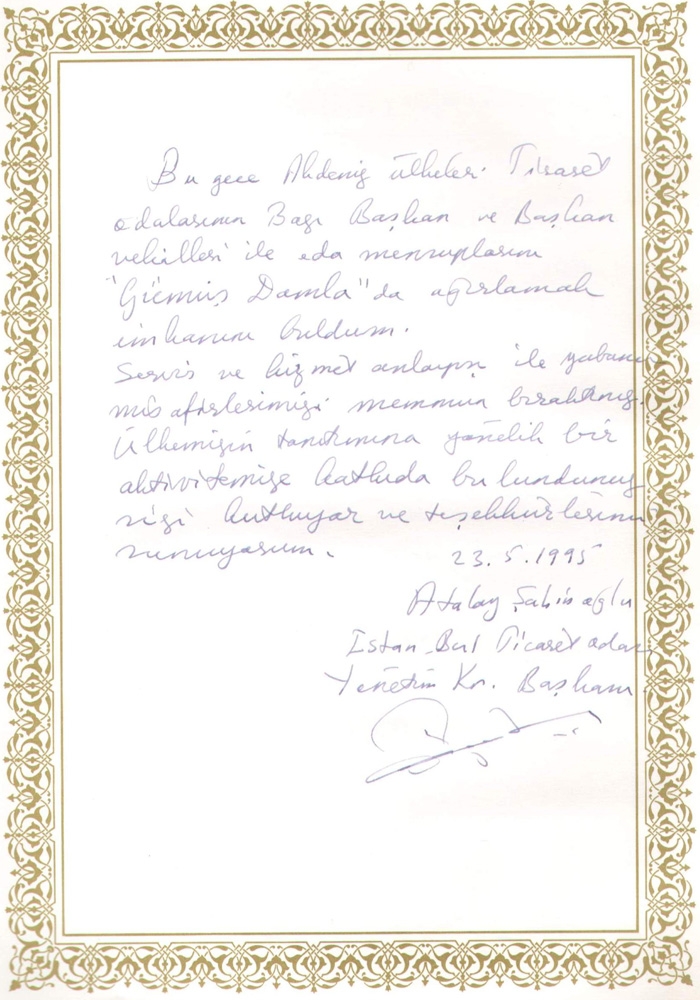 Bu gece Akdeniz ülkeleri Ticaret
odalarının Bazı Başkan ve Başkan
vekilleri ile oda mensuplarını
"Gümüş Damla"da ağırlamak
imkanını buldum.
Servis ve hizmet anlayışı ile yabancı
misafirlerimizi memnun bıraktınız.
Ülkemizin tanıtımına yönelik bir
aktivitemize katkıda bulundunuz
sizi kutluyor ve teşekkürlerimi
sunuyorum.
23.5.1995
Atalay Şahinoğlu
İstanbul Ticaret odası
Yönetim Kr. Başkanı